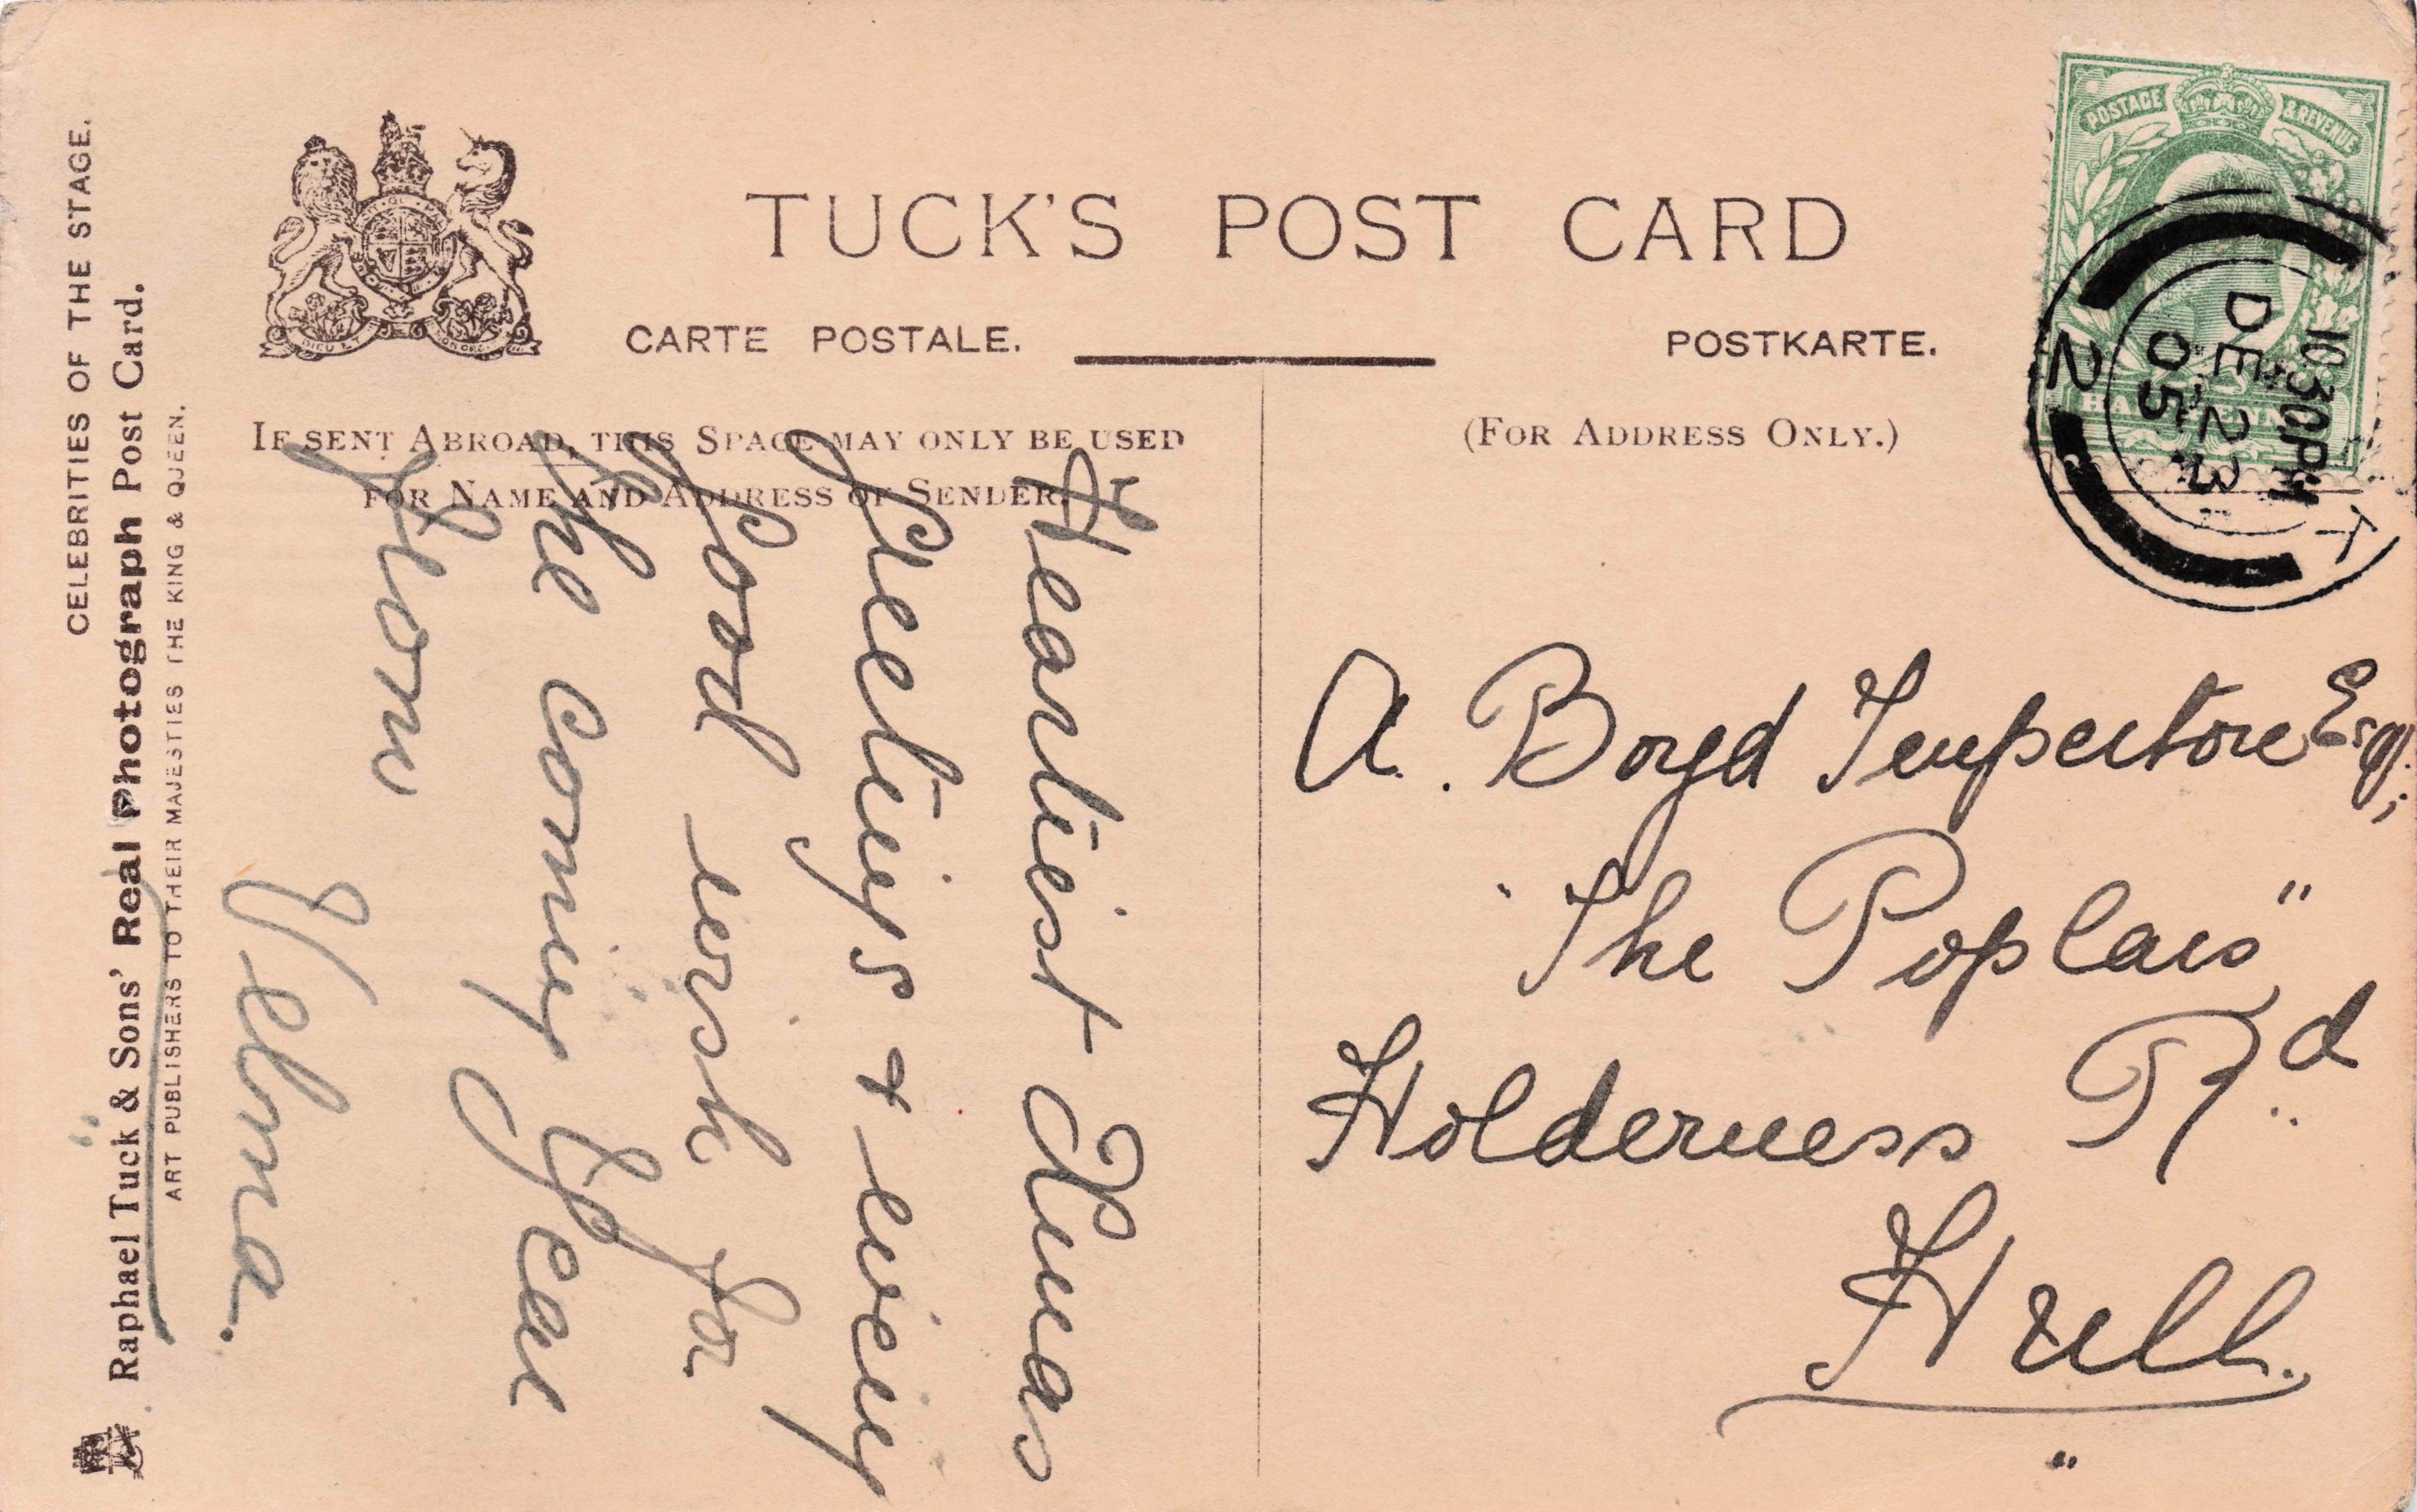 CELEBRITIES OF THE STAGE.
Raphael Tuck & Sons' Real Photograph Post Card.
ART PUBLISHERS TO THEIR MAJESTIES THE KING & QUEEN.
TUCK'S POST CARD
CARTE POSTALE.
POSTKARTE.
IF SENT ABROAD, THIS SPACE MAY ONLY BE USED
FOR NAME AND ADDRESS OF SENDER.
(FOR ADDRESS ONLY.)
POSTAGE & REVENUE
HALFPENNY
10.30PM
DE 23
05
2
Heartiest Xmas
Greetings & every
Good wish for
the coming Year
from
Velma.
A. Boyd Esq;
"The Poplars"
Holderness Rd
Hull.